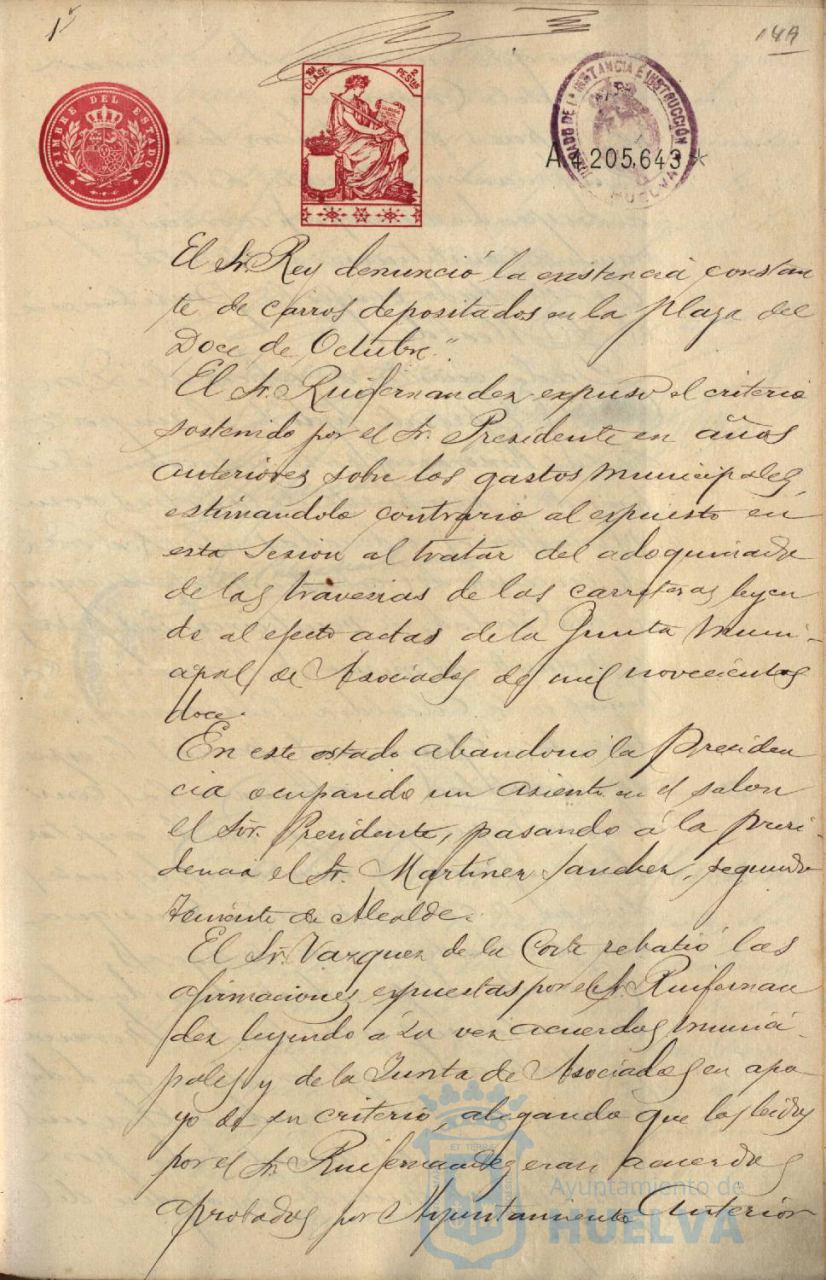 1º
14A
TIMBRE DEL ESTADO
CLASE 2 PESTAS
JUZGADO DE 1A INSTANCIA E INSTRUCCIÓN
HUELVA
A.4.205,643 *
El Sr. Rey denunció la existencia constan
te de carros depositados en la plaza del
Doce de Octubre".
El Sr. Ruifernandez expuso el criterio
sostenido por el Sr. Presidente en años
anteriores sobre los gastos municipales,
estimandolo contrario al expuesto en
esta sesion al tratar del adoquinado
de las travesias de las carreteras leyen
do al efecto actas de la Junta Muni-
cipal de Asociados de mil novecientos
doce.
En este estado abandonó la Presiden
cia ocupando un asiento en el salon
el Sor. Presidente, pasando á la presi-
dencia el Sr. Martinez Sanchez, segundo
Teniente de Alcalde.
El Sr. Vazquez de la Corte rebatió las
afirmaciones expuestas por el Sr. Ruifernan
dez leyendo á su vez acuerdos munici-
pales y de la Junta de Asociados en apo
yo de su criterio, alegando que los leidos
por el Sr. Ruifernandez eran acuerdos
aprobados por Ayuntamiento anterior
Ayuntamiento de
HUELVA